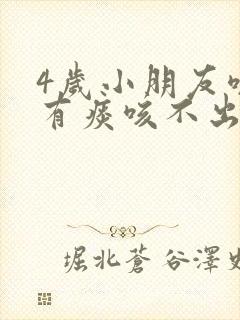 4歲小朋友咳
有痰咳不出
堀北蒼 谷澤